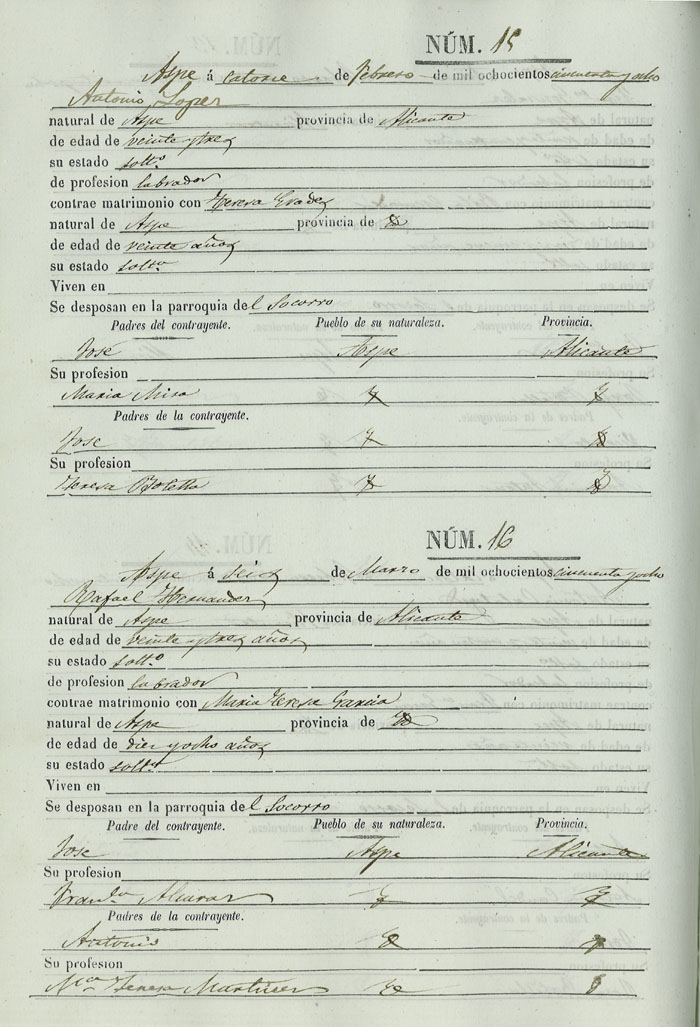 NÚM. 15
Aspe á catorce de Febrero de mil ochocientos cincuenta y ocho
Antonio Lopez
natural de Aspe provincia de Alicante
de edad de veinte y tres
su estado solt.º
de profesion labrador
contrae matrimonio con Teresa
natural de Aspe provincia de
de edad de veinte años
su estado solt.ª
Viven en
Se desposan en la parroquia del Socorro
Padres del contrayente. Pueblo de su naturaleza. Provincia.
José Aspe Alicante
Su profesion
Maria Mira
Padres de la contrayente.
Jose
Su profesion
Teresa Botella
NÚM. 16
Aspe á seis de Marzo de mil ochocientos cincuenta y ocho
Rafael Hernandez
natural de Aspe provincia de Alicante
de edad de veinte y tres años
su estado solt.º
de profesion labrador
contrae matrimonio con Maria Teresa Garcia
natural de Aspe provincia de
de edad de diez y ocho años
su estado solt.ª
Viven en
Se desposan en la parroquia del Socorro
Padre del contrayente. Pueblo de su naturaleza. Provincia.
Jose Aspe Alicante
Su profesion
Fran.ca
Padres de la contrayente.
Antonio
Su profesion
M.ª Teresa Martinez